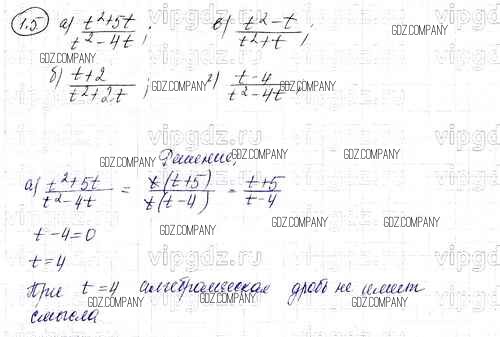 1.5 а) t²+5t / t²-4t ; в) t²-t / t²+t ;
б) t+2 / t²+2t ; г) t-4 / t²-4t ;
Решение,
а) t²+5t / t²-4t = t(t+5) / t(t-4) = t+5 / t-4
t-4=0
t=4
При t=4 алгебраическая дробь не имеет
смысла
vipgdz.ru
GDZ.COMPANY